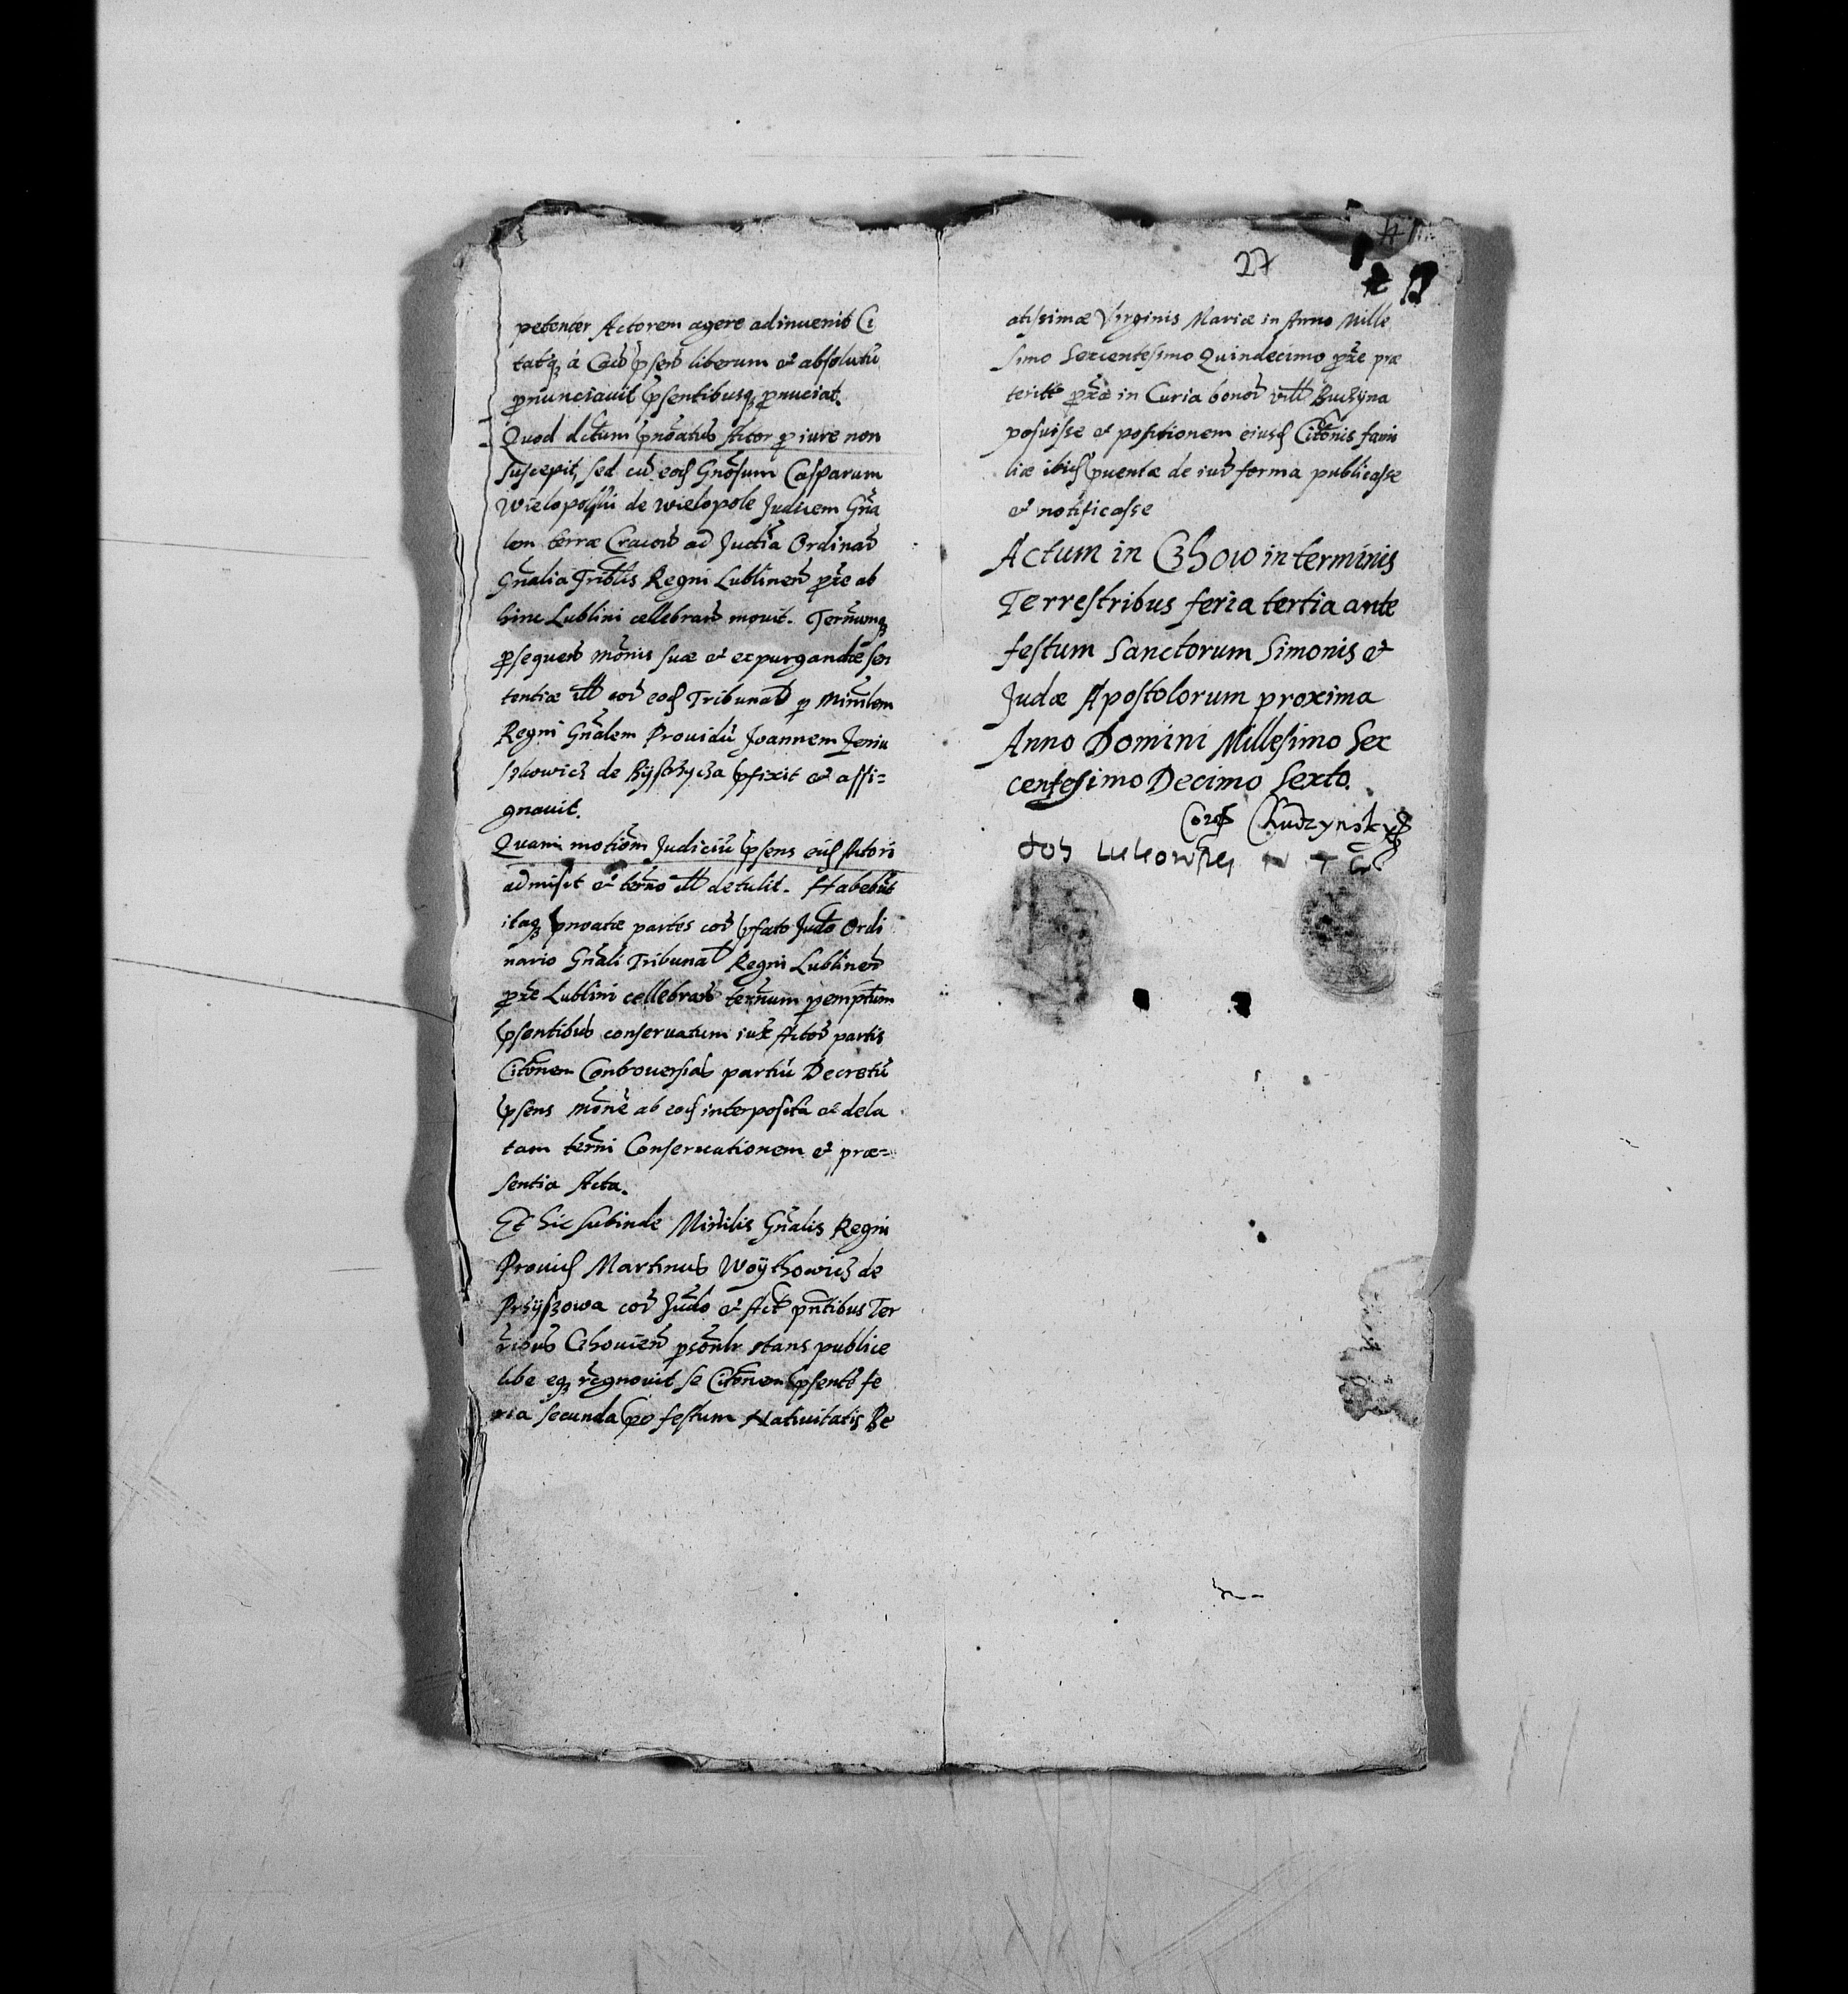 petenter Actorem agere adinuenit Ci
tatq́3 á Caũ p̃senũ liberum et absolutũ
pronunciauit p̃sentibusq3 pronuciat.
Quod dictum p̃noatus Actor p iure non
suscepit, sed cũ eod Gnosum Casparum
Wielopolski de Wielopole Judicem Gña
lem terræ Cracoũ ad Judia Ordinaũ
Gñalia Triblis Regni Lublineñ pxe ab
hinc Lublini cellebrañ mouit. Termumq3
prosequen monis suæ et expurgandæ sen
tentiæ ill cor eod Tribunal p Minilem
Regni Gñalem Prouidũ Joannem Jeniu
szkowicz de Bÿstrzycza p̃fixit et assi=
gnauit.
Quam motiom Judiciũ p̃sens eid Actori
admisit et termo ill detulit. Habebut
itaq3 p̃noatæ partes cor p̃fato Judo Ordi
nario Gñali Tribunal Regni Lublineñ
pxe Lublini cellebrañ termum peremptum
p̃sentibus conseruatum iux Actor partis
Citonem Controuersias partiũ Decretũ
p̃sens monẽ ab eod interposita et dela
tam termi Conseruationem et præ=
sentia Acta.
Et hic subinde Minilis Gñalis Regni
Prouid Martinus Woÿthowicz de
Przÿszowa cor Judo et Act pñtibus Ter
ribus Czhouieñ psonlr stans publice
libe eq3 recgnouit se Citonem p̃sente fe
ria secunda po festum Natiuitatis Be
27
atissimæ Virginis Mariæ in Anno Mille
simo Sexcentesimo Quindecimo pxe præ
terit pxa in Curia bonor vill Buczyna
posuisse et positionem eiusd Citonis fami
liæ ibid p̃uentæ de iur forma publicasse
et notificasse
Actum in Czhow in terminis
Terrestribus feria tertia ante
festum Sanctorum Simonis et
Judæ Apostolorum proxima
Anno Domini Millesimo Sex
centesimo Decimo Sexto.